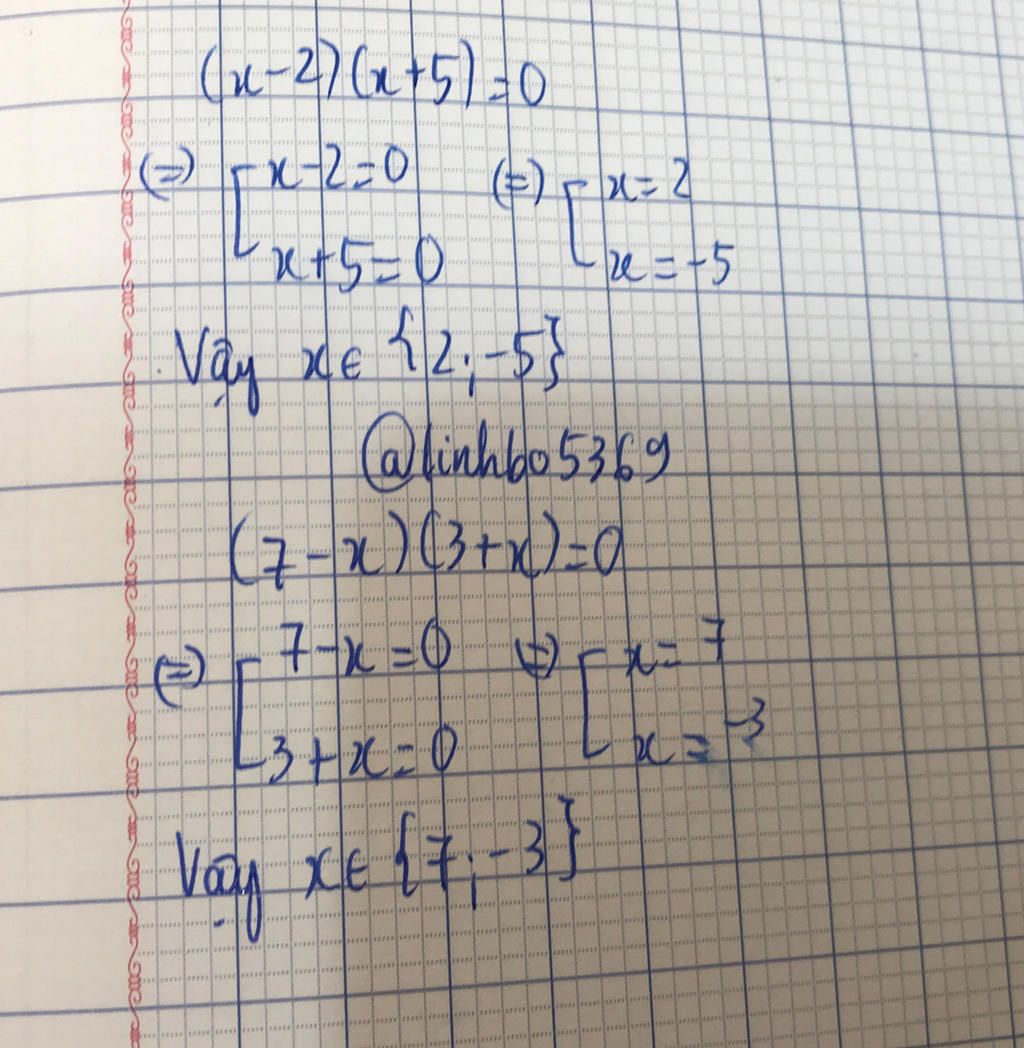 (x-2)(x+5)=0
(=) [ x-2=0 (=) [ x=2
x+5=0 x=-5
Vậy x∈ {2;-5}
@linhbo5369
(7-x)(3+x)=0
(=) [ 7-x=0 (=) [ x=7
3+x=0 x=-3
Vậy x∈ {7;-3}